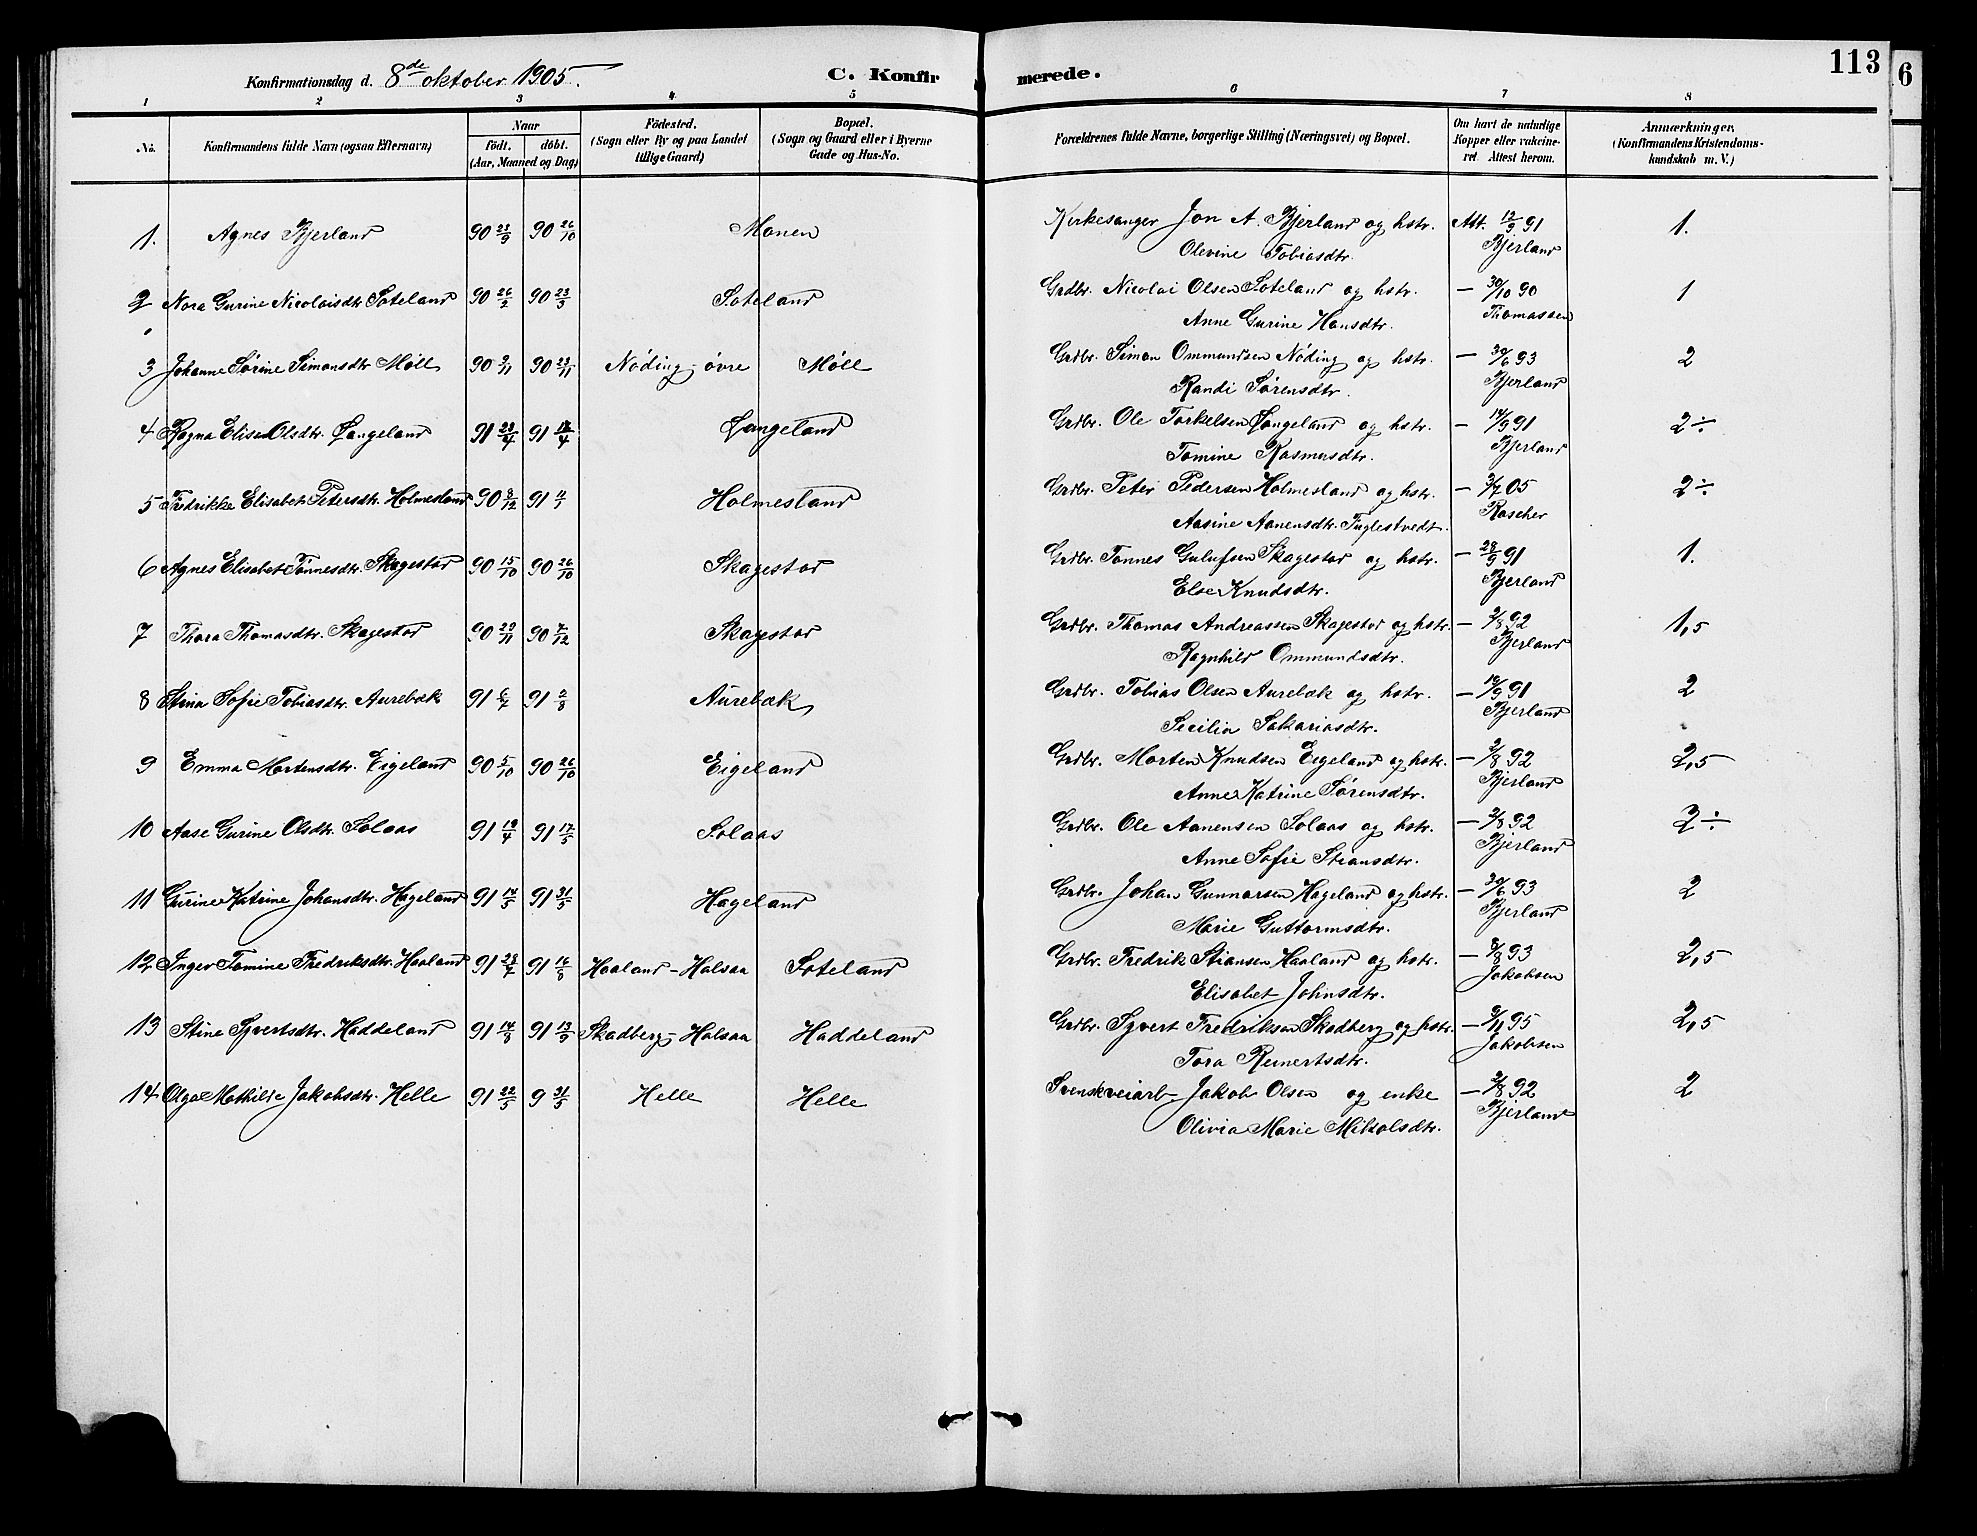 113
6
Konfirmationsdag d. 8de oktober 1905.
C. Konfirmerede.
1 2 3 4 5 6 7 8
No.
Konfirmandens fulde Navn (ogsaa Efternavn)
Naar
födt. döbt.
(Aar, Maaned og Dag)
Födested.
(Sogn eller By og paa Landet
tillige Gaard)
Bopæl.
(Sogn og Gaard eller i Byerne
Gade og Hus-No.
Forældrenes fulde Navne, borgerlige Stilling (Næringsvei) og Bopæl.
Om havt de naturlige
Kopper eller vakcine-
ret Attest herom.
Anmærkninger.
(Konfirmandens Kristendoms-
kundskab m. V.)
1. Agnes Bjerland 90 23/9 90 26/10 Monen Kirkesanger Jon A. Bjerland og hstr. Att. 12/9 91 1.
Olevine Tobiasdtr. Bjerland
2 Nora Gurine Nicolaisdtr Soteland 90 26/2 90 23/3 Soteland Grdbr. Nicolai Olsen Soteland og hstr. — 30/10 90 1
Anne Gurine Hansdtr. Thomassen
3 Johanne Sørine Simonsdtr Möll 90 9/11 90 23/11 Nöding-övre Möll Grdbr. Simon Ommundsen Nöding og hstr. — 30/6 93 2
Randi Sørensdtr. Bjerland
4 Ragna Elise Olsdtr. Langeland 91 91 Langeland Grdbr. Ole Torkelsen Langeland og hstr. — 14/9 91 2÷
Tomine Rasmusdtr. Bjerland
5 Fredrikke Elisabet Petersdtr. Holmesland 90 8/12 91 Holmesland Grdbr. Peter Pedersen Holmesland og hstr. — 3/7 05 2÷
Aasine Aanensdtr. Fuglestvedt. Roscher
6 Agnes Elisabet Tönnesdtr. Skagestad 90 15/10 90 26/10 Skagestad Grdbr. Tönnes Gulufsen Skagestad og hstr. — 28/9 91 1.
Else Knudsdtr. Bjerland
7 Thora Thomasdtr. Skagestad 90 29/11 90 7/12 Skagestad Grdbr. Thomas Andreassen Skagestad og hstr. — 2/8 92 1,5
Ragnhild Ommundsdtr. Bjerland
8 Stina Sofie Tobiasdtr. Aurebæk 91 6/7 91 2/8 Aurebæk Grdbr. Tobias Olsen Aurebæk og hstr. — 14/9 91 2
Secilia Sakariasdtr. Bjerland
9 Emma Martensdtr. Eigeland 90 5/10 90 26/10 Eigeland Grdbr. Morten Knudsen Eigeland og hstr. — 2/8 92 2,5
Anne Katrine Sørensdtr. Bjerland
10 Aase Gurine Olsdtr. Solaas 91 19/4 91 17/5 Solaas Grdbr. Ole Aanensen Solaas og hstr. — 2/8 92 2÷
Anne Sofie Stiansdtr. Bjerland
11 Gurine Katrine Johansdtr. Hageland 91 14/5 91 31/5 Hageland Grdbr. Johan Gunnarsen Hageland og hstr. — 30/6 93 2
Marie Guttormsdtr. Bjerland
12 Inger Tomine Fredriksdtr. Haaland 91 28/7 91 16/8 Haaland-Halsaa Soteland Grdbr. Fredrik Stiansen Haaland og hstr. — 8/8 93 2,5
Elisabet Johnsdtr. Jakobsen
13 Stine Syvertsdtr. Haddeland 91 14/8 91 13/9 Skadberg-Halsaa Haddeland Grdbr. Syvert Fredriksen Skadberg og hstr. — 2/11 95 2,5
Tora Reinertsdtr. Jakobsen
14 Olga Mathilde Jakobsdtr. Helle 91 22/5 9 31/5 Helle Helle Svensk veiarb. Jakob Olsen og enke — 2/8 92 2
Olivia Marie Mikkalsdtr. Bjerland